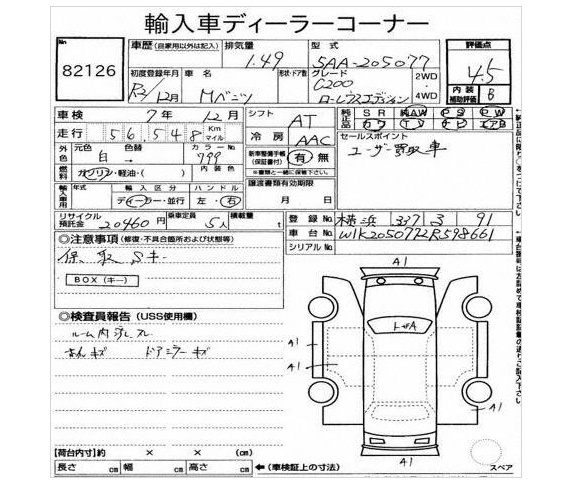 輸入車ディーラーコーナー
No
82126
車歴 (自家用以外は記入)
排気量
1.49
型式
5AA-205077
評価点
4.5
初度登録年月
R3/12月
車名
Mベンツ
形状・ドア数
グレード
C200
ローレウスエディション
2WD
4WD
内装
補助評価
B
車検
7年 12月
シフト
AT
純正品
SR
純AW
PS
PW
走行
56,548
Km
マイル
冷房
AAC
セールスポイント
ユーザー買取車
外色
元色
白
色替
→
カラーNo
799
新車整備手帳
(保証書付)
有・無
※書類と一緒に保管下さい。
燃料
ガソリン・軽油・( )
内装色
輸入車用
年式
輸入区分
ディーラー・並行
ハンドル
左・右
譲渡書類有効期限
月 日
リサイクル
預託金
20460円
乗定員
5人
積載量
t
登録No
横浜 337 ヨ 91
車台No
W1K2050772R598661
シリアルNo
◎注意事項 (修復・不具合箇所および状態等)
保、取 Sキー
BOX(キー)
◎検査員報告 (USS使用欄)
ルーム内汚レ スレ
ドアミラーキズ
A1
トメA
A1
A1
A1
A1
A1
スペア
【荷台内寸】約 × × cm
長さ cm 幅 cm 高さ cm
←(車検証上の寸法)